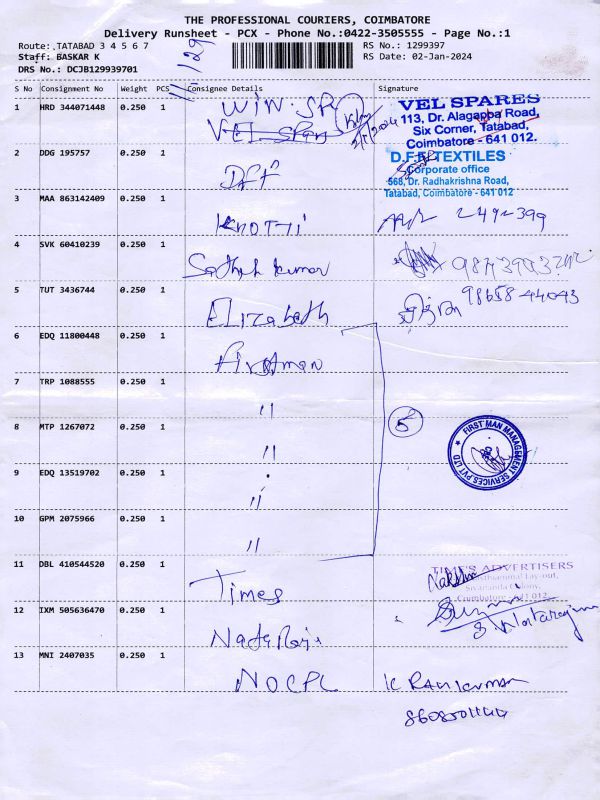 THE PROFESSIONAL COURIERS, COIMBATORE
Delivery Runsheet - PCX - Phone No.:0422-3505555 - Page No.:1
Route: TATABAD 3 4 5 6 7
RS No.: 1299397
Staff: BASKAR K
RS Date: 02-Jan-2024
DRS No.: DCJB129939701
S No Consignment No Weight PCS Consignee Details Signature
1 HRD 344071448 0.250 1 WIN
VEL SPARES
113, Dr. Alagappa Road,
Six Corner, Tatabad,
Coimbatore - 641 012.
2 DDG 195757 0.250 1 DFF
D.F.F. TEXTILES
Corporate office
568, Dr. Radhakrishna Road,
Tatabad, Coimbatore - 641 012
3 MAA 863142409 0.250 1
4 SVK 60410239 0.250 1 Sathish Kumar
5 TUT 3436744 0.250 1 Elizabeth 98658 44043
6 EDQ 11800448 0.250 1 Firstman
7 TRP 1088555 0.250 1 "
8 MTP 1267072 0.250 1 "
5
FIRST MAN MANAGEMENT SERVICES PVT LTD
9 EDQ 13519702 0.250 1 "
10 GPM 2075966 0.250 1 "
11 DBL 410544520 0.250 1 Times
TIME'S ADVERTISERS
Sivananda Colony,
Coimbatore - 641 012
12 IXM 505636470 0.250 1 Nataraj
13 MNI 2407035 0.250 1 NOCPL K RAVIKUMAR